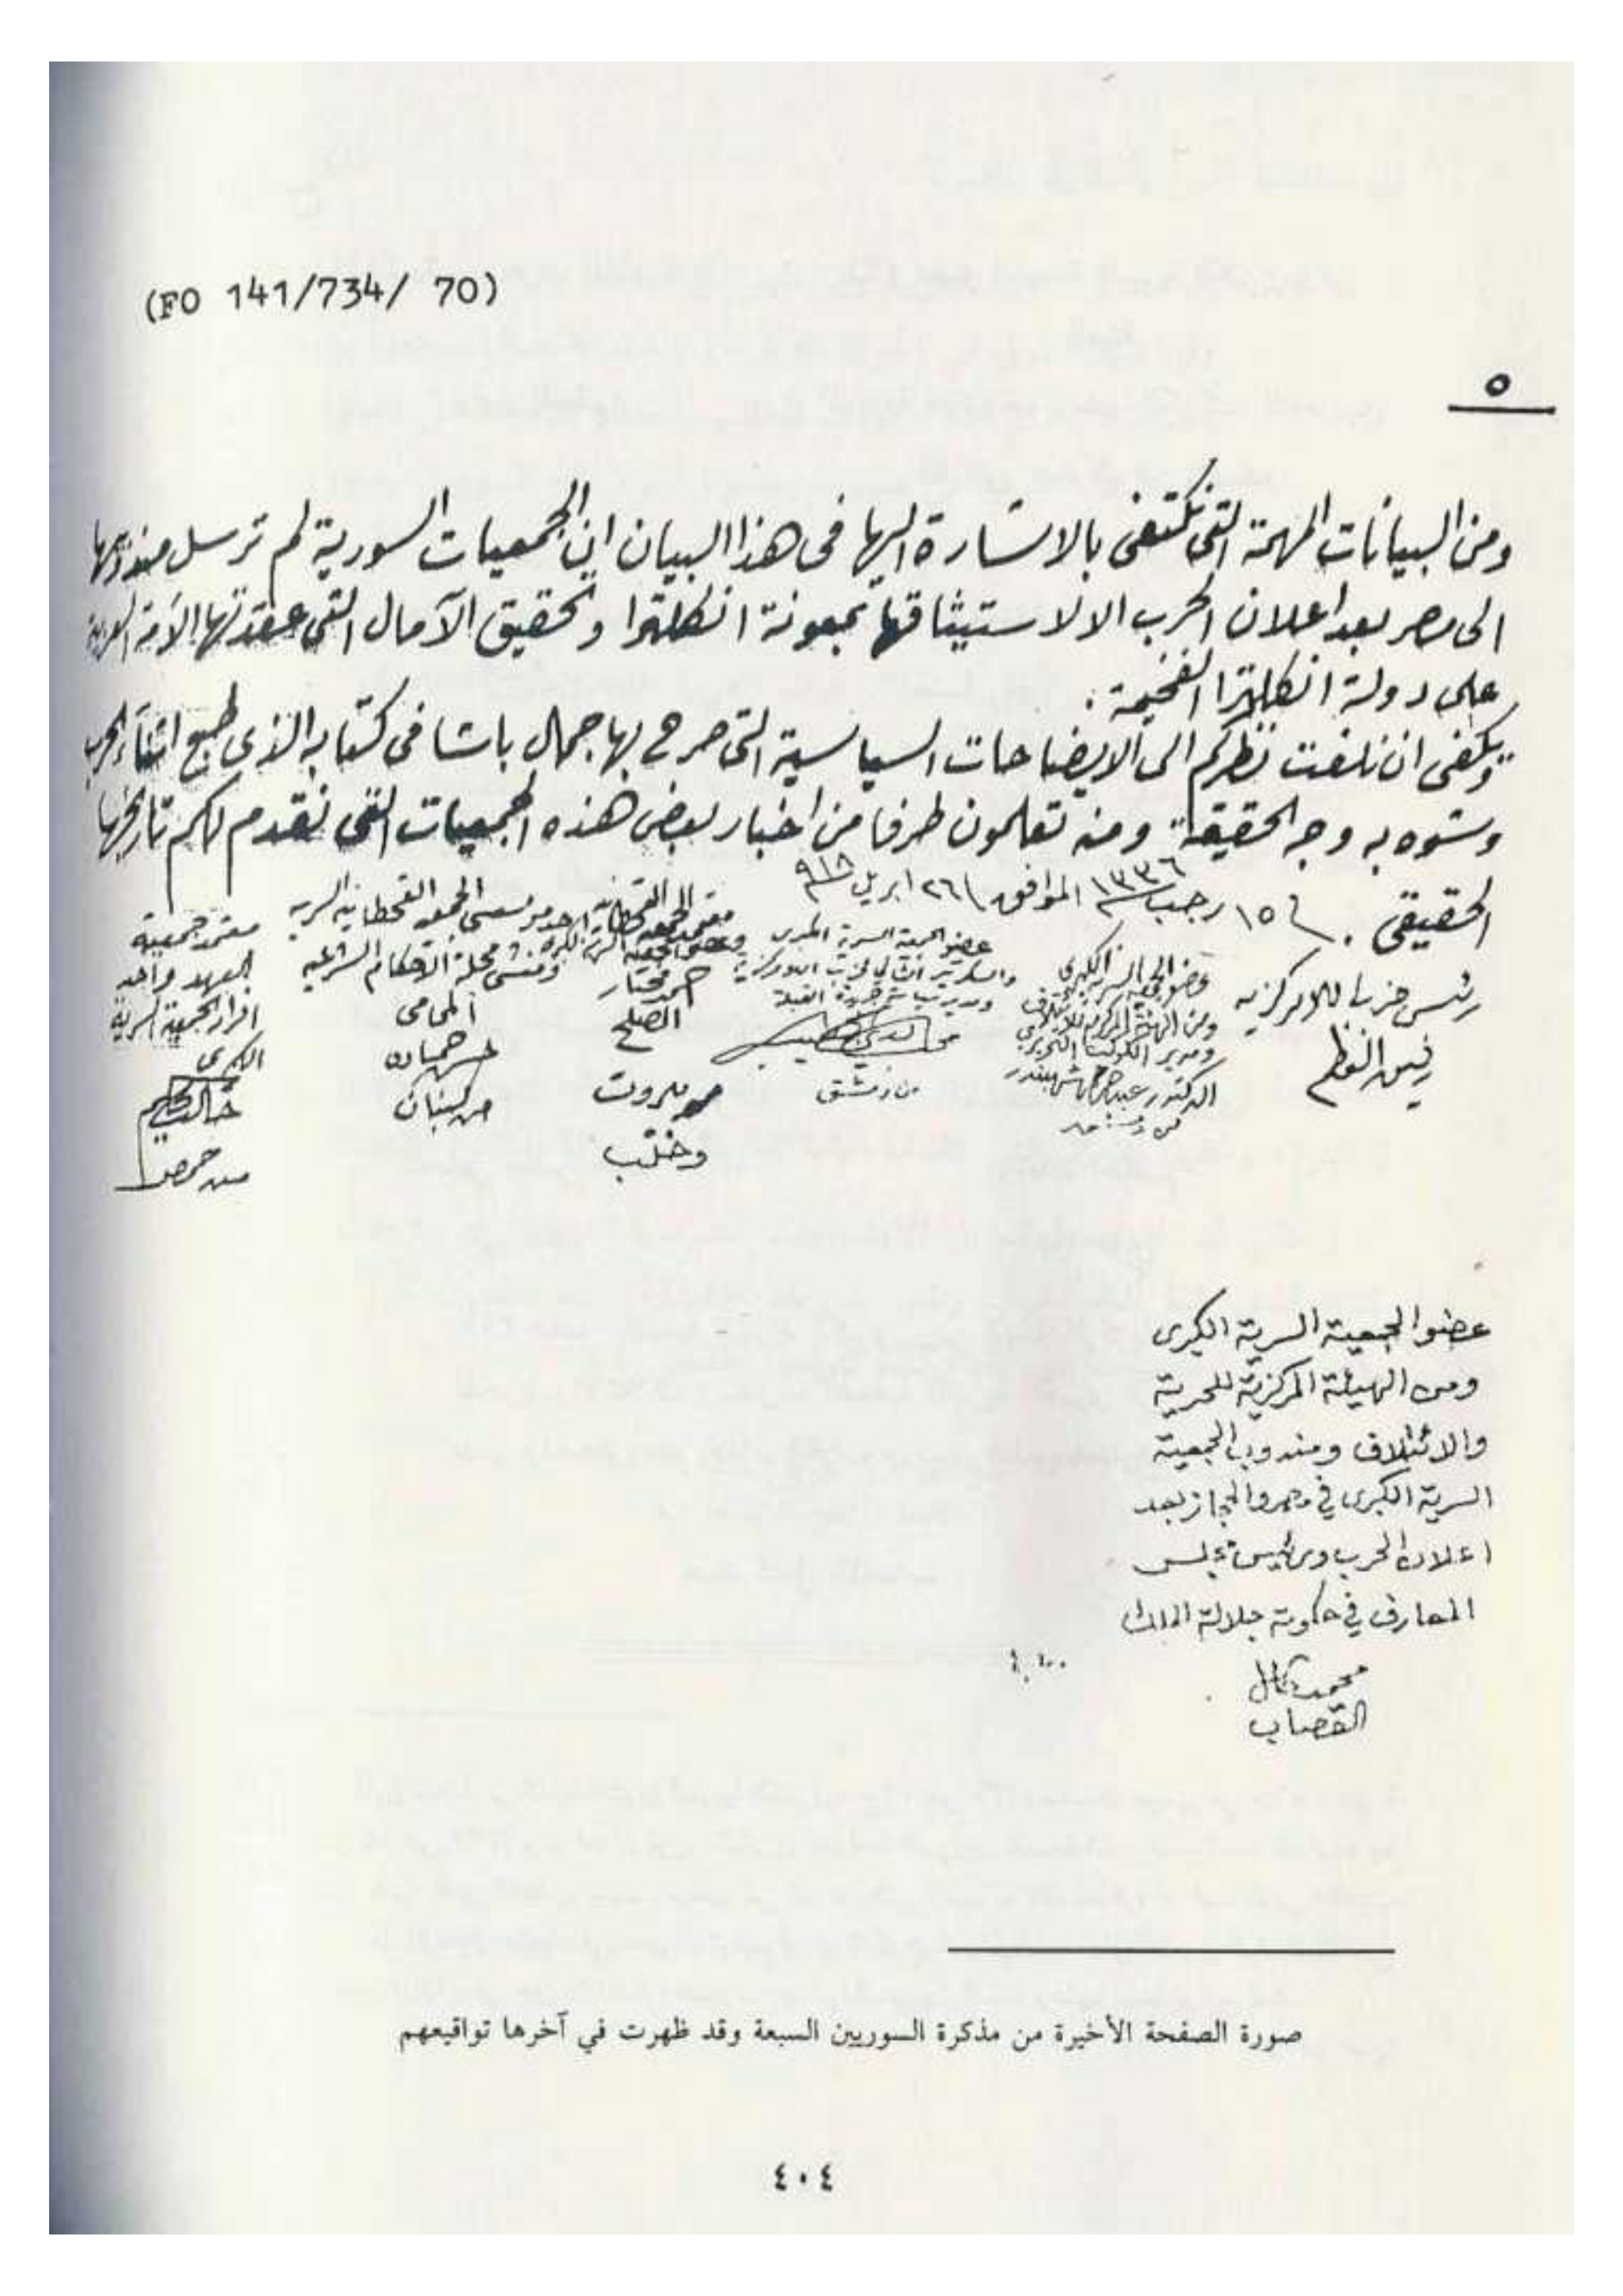 (FO 141/734/ 70)
٥
ومن البيانات المهمة التي نكتفي بالاشارة اليها في هذا البيان ان الجمعيات السورية لم ترسل مندوبيها
الى مصر بعد اعلان الحرب الا لاستيثاقها بمعونة انكلترا وتحقيق الآمال التي عقدتها الأمة العربية
على دولة انكلترا الفخيمة .
ويكفي ان نلفت نظركم الى الايضاحات السياسية التي صرح بها جمال باشا في كتابه الذي طبع اثناء الحرب
وشوه به وجه الحقيقة ومنه تعلمون طرفا من اخبار بعض هذه الجمعيات التي نقدم لكم تاريخها
الحقيقي . في ١٥ رجب ١٣٣٦ الموافق ٢٦ ابريل ٩١٨
رئيس حزب اللامركزية
رفيق العظم
وعضو الجمعية السرية الكبرى
الدكتور عبد الرحمن شهبندر
من دمشق
عضو الجمعية السرية الكبرى
ومدير جريدة القبلة
محب الدين الخطيب
من دمشق
مختار
الصلح
بيروت
وحلب
احد مؤسسي الجمعية القحطانية السرية
ومنشئ مجلة الاحكام الشرعية
المحامي
حسن حماده
من لبنان
معتمد جمعية
العهد واحد
افراد الجمعية السرية
الكبرى
خالد الحكيم
من حمص
عضو الجمعية السرية الكبرى
ومن الهيئة المركزية للحرية
والائتلاف ومندوب الجمعية
السرية الكبرى في مصر والحجاز بعد
اعلان الحرب ورئيس مجلس
المعارف في حكومة جلالة الملك
محمد كامل
القصاب
صورة الصفحة الأخيرة من مذكرة السوريين السبعة وقد ظهرت في آخرها تواقيعهم
٤٠٤